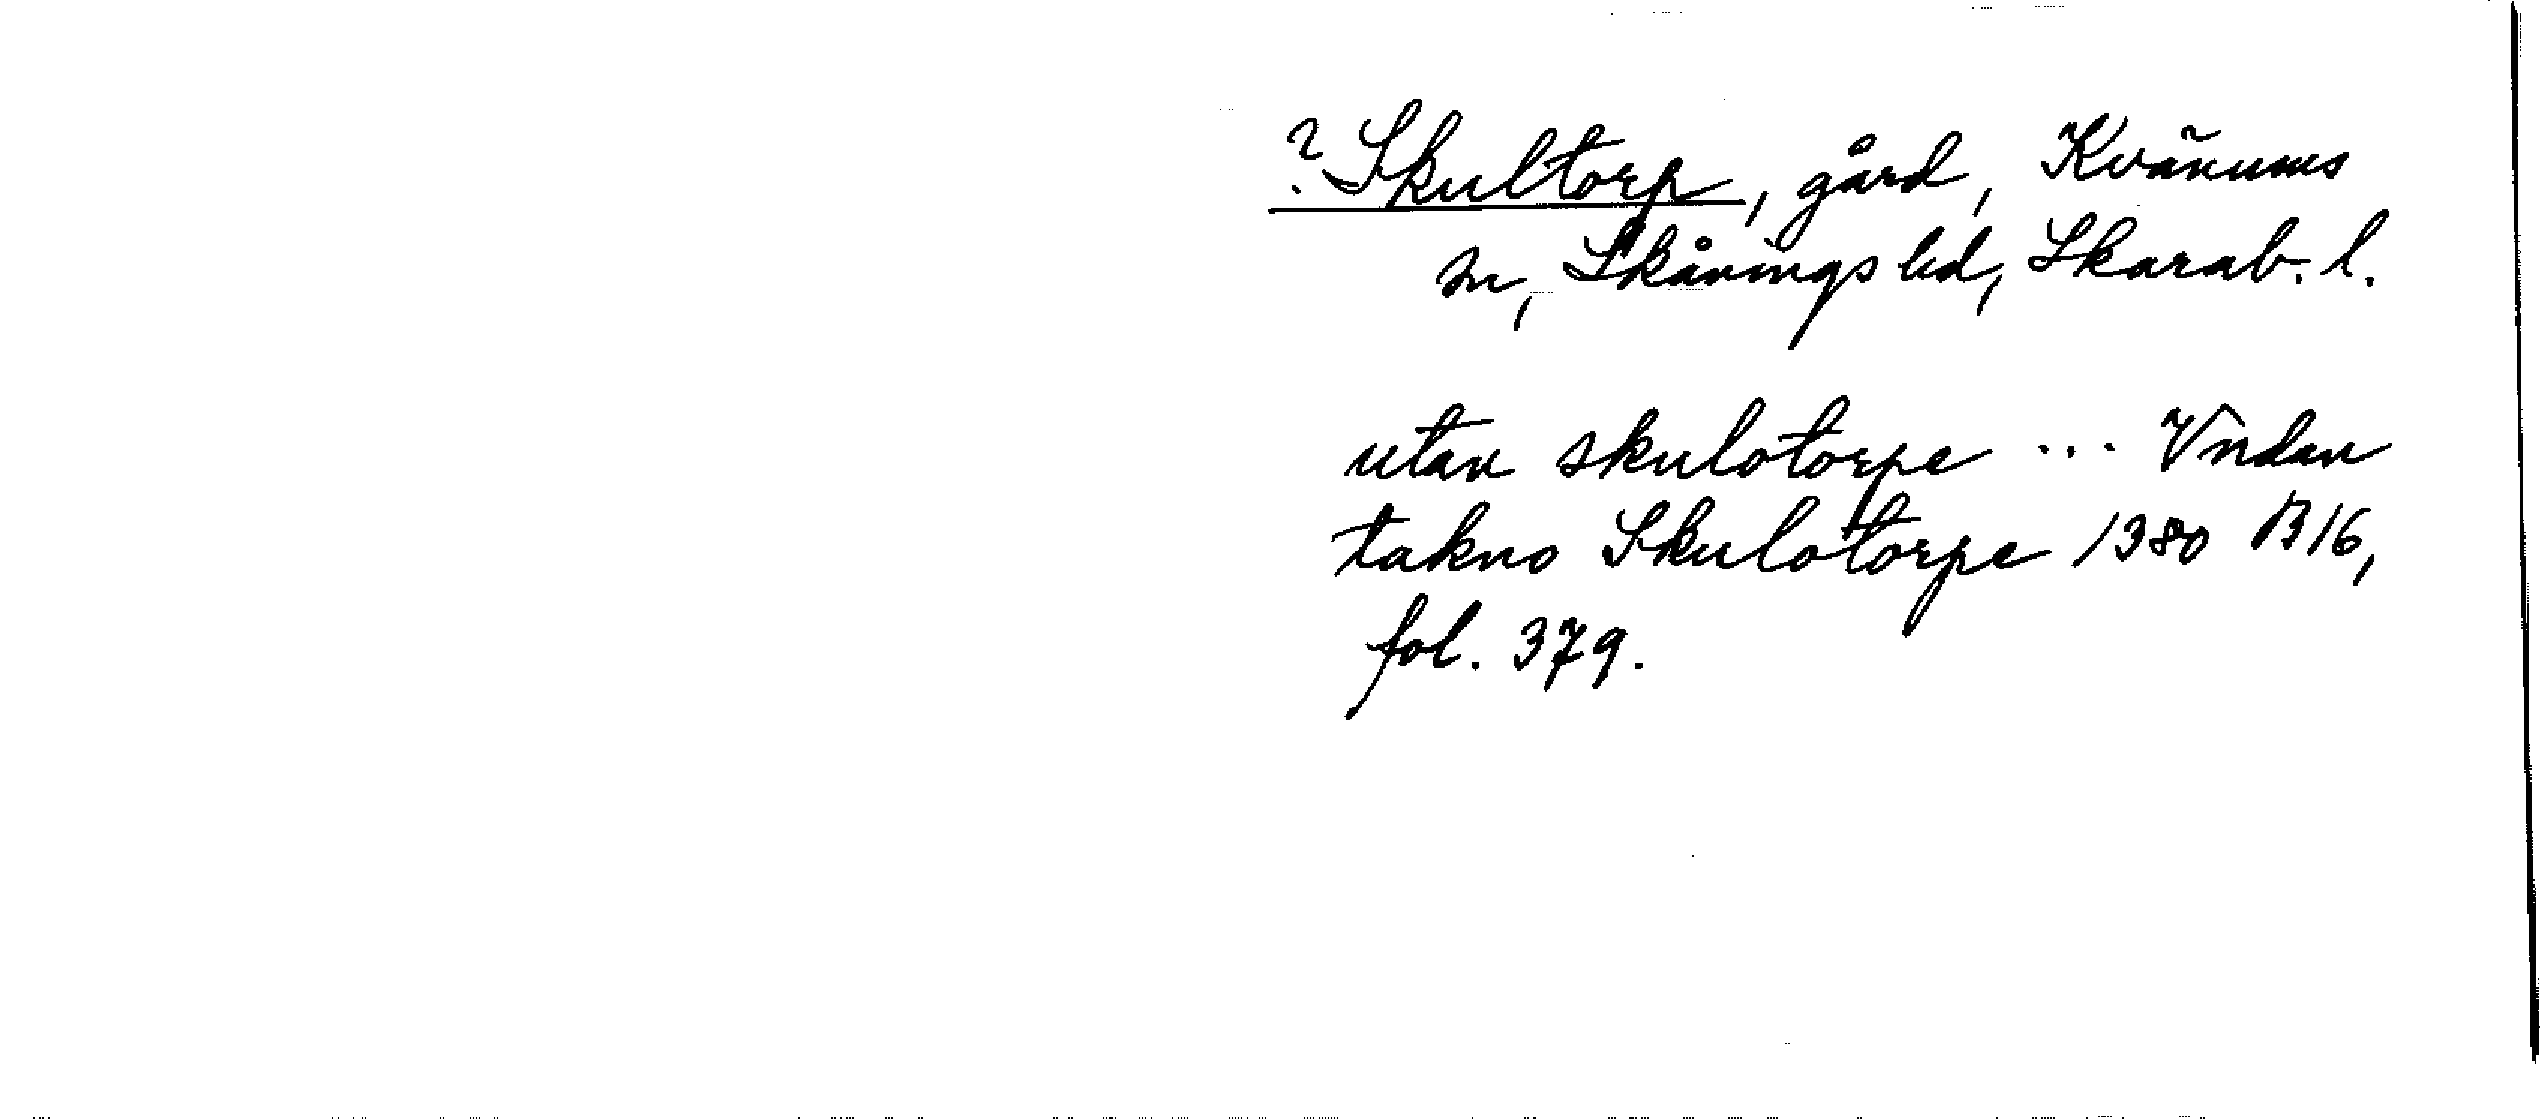 ? Skultorp, gård, Kvänums
sn, Skånings hd, Skarab. l.
utan skulotorpe ... Vndan
takno Skulotorpe 1380 B 16,
fol. 379.